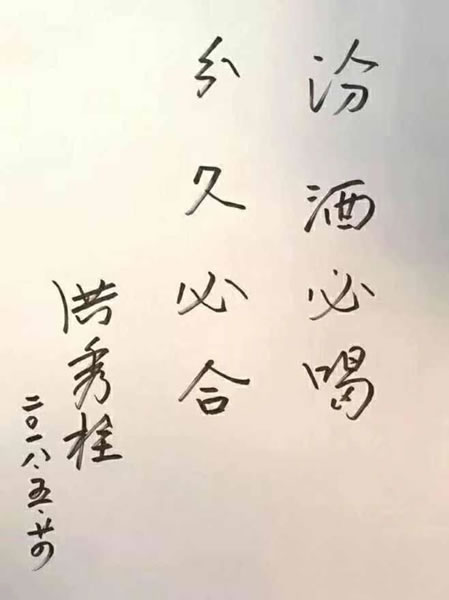 汾酒必喝
分久必合
洪秀柱
二〇一八.五.廿四